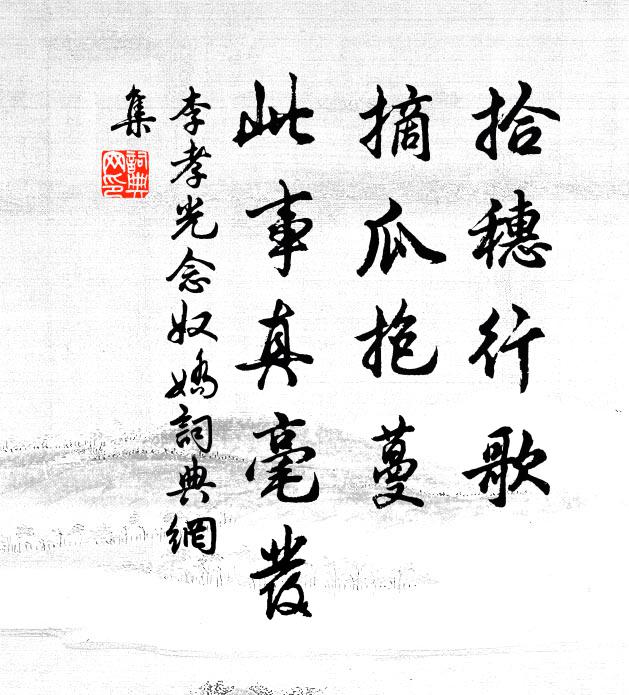 拾穗行歌
摘瓜抱蔓
此事真毫發
李孝光念奴嬌詞典網
集
詞典
网印